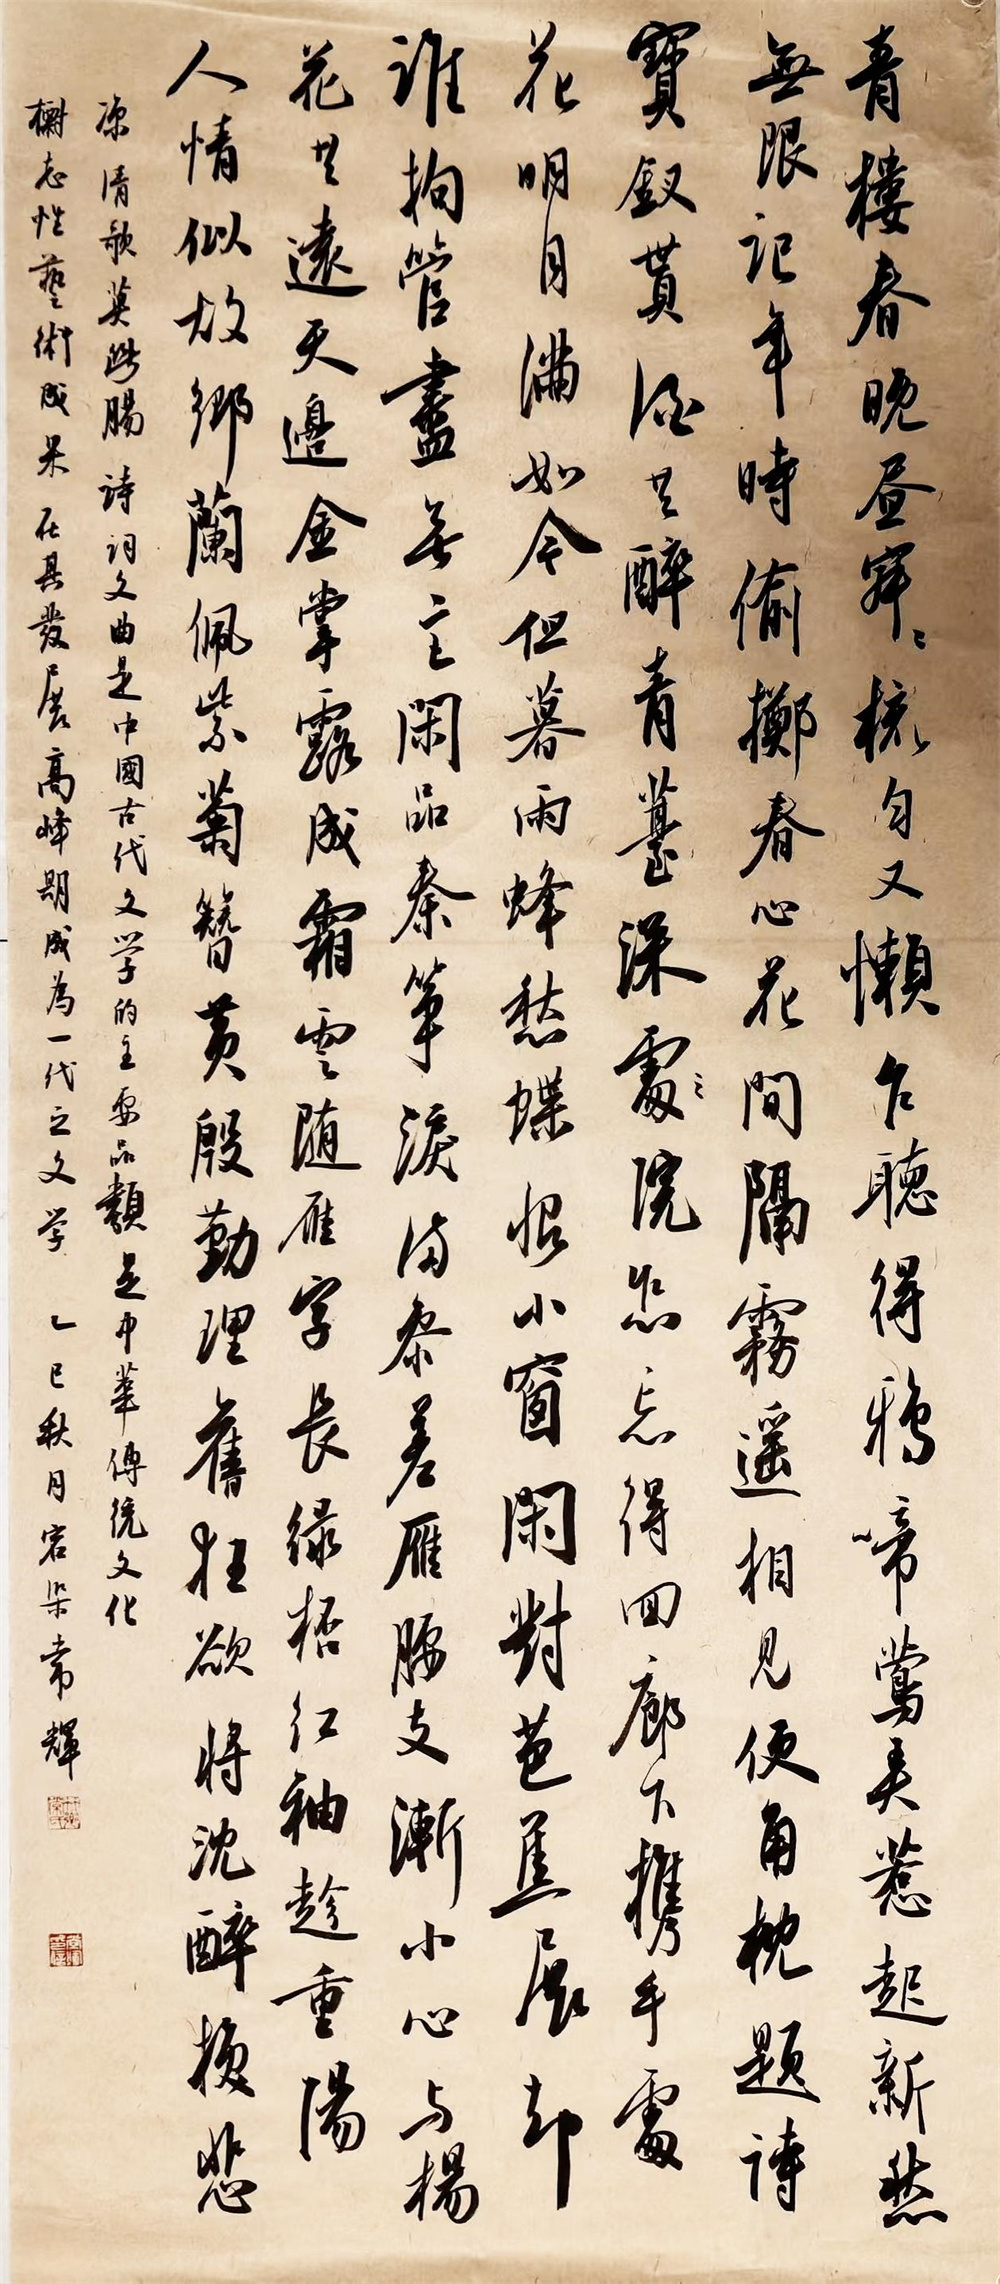 青樓春晚晝寂〻梳勻又懶乍聽得鴉啼鶯弄惹起新愁
無限記年時偷擲春心花間隔霧遥相見便角枕題詩
寶釵貰酒共醉青薹深處〻院怎忘得回廊下攜手處
花明月滿如今但暮雨蜂愁蝶恨小窗閑對芭蕉展却
誰拘管盡無言閑品秦箏淚滿參差雁腰支漸小心与楊
花共遠天邊金掌露成霜雲随雁字長緑杯紅袖趁重陽
人情似故鄉蘭佩紫菊簪黄殷勤理舊狂欲將沈醉換悲
凉清歌莫斷腸 詩詞文曲是中國古代文学的主要品類是中華傳統文化
志性藝術成果在其發展高峰期成為一代之文学 乙巳秋月宕渠常輝